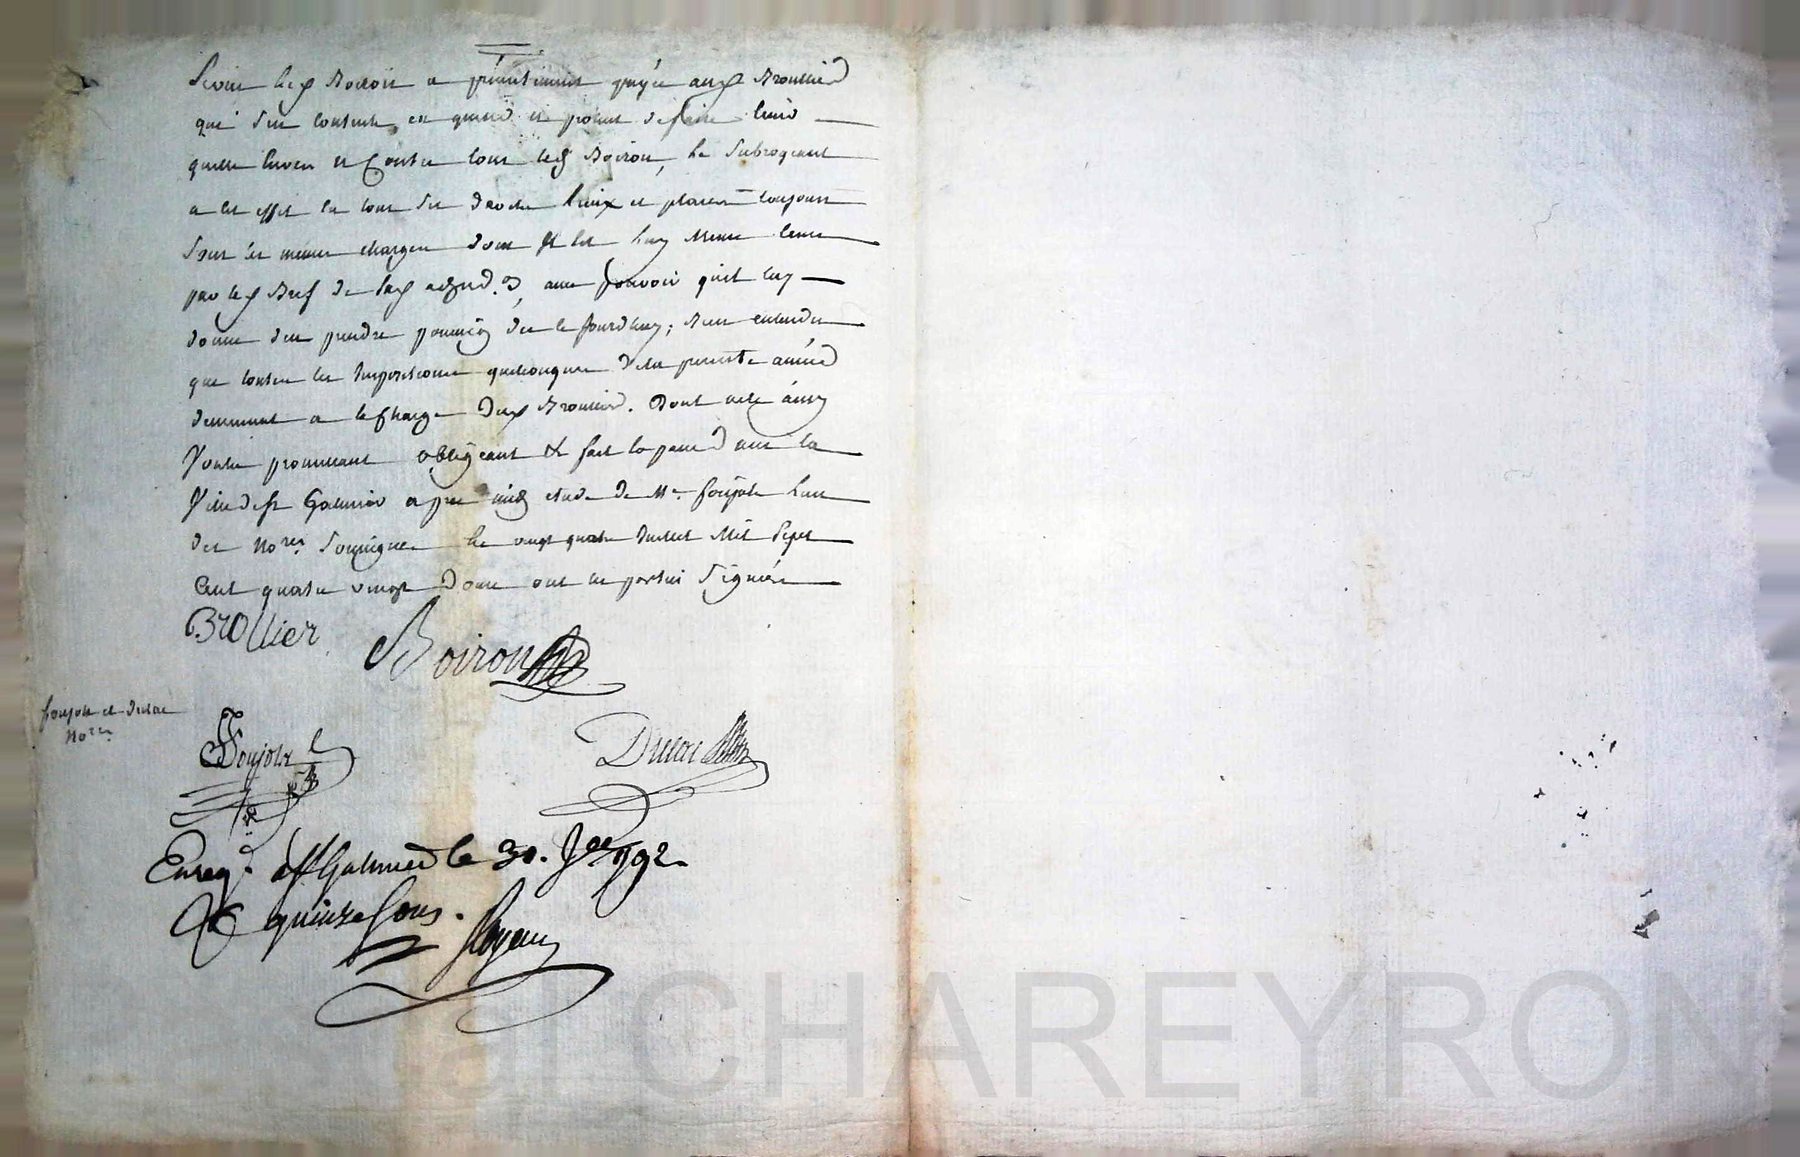 Sieur Boiron a presentement payée aud Broullier
qui s'en contente, en quitte et promet de faire tenir
quitte envers et contre tous led Boiron, le subrogeant
a cet effet en tous ses droits lieux et places toujours
sous les memes charges dont il est luy meme tenu
par led Bref de lad adjud.on, avec pouvoir qu'il luy
donne d'en prendre possession dès ce jourd'huy; bien entendu
que toutes les impositions quelconques de la presente année
demeurent a la charge dud Broullier. Dont acte ainsy
voulu promettant obligeant &c fait et passé en la
Ville de St Galmier apres midy etude de Me Foujols l'un
des Nores soussignés le vingt quatre Mil Sept
Cent quatre vingt douze ont les parties signées
Brollier
Boiron
Foujols et Dulac
Nores
Foujols
Dulac
Enreg. a St Galmier le 30. 1792.
R quinze sous.
Pascal CHAREYRON